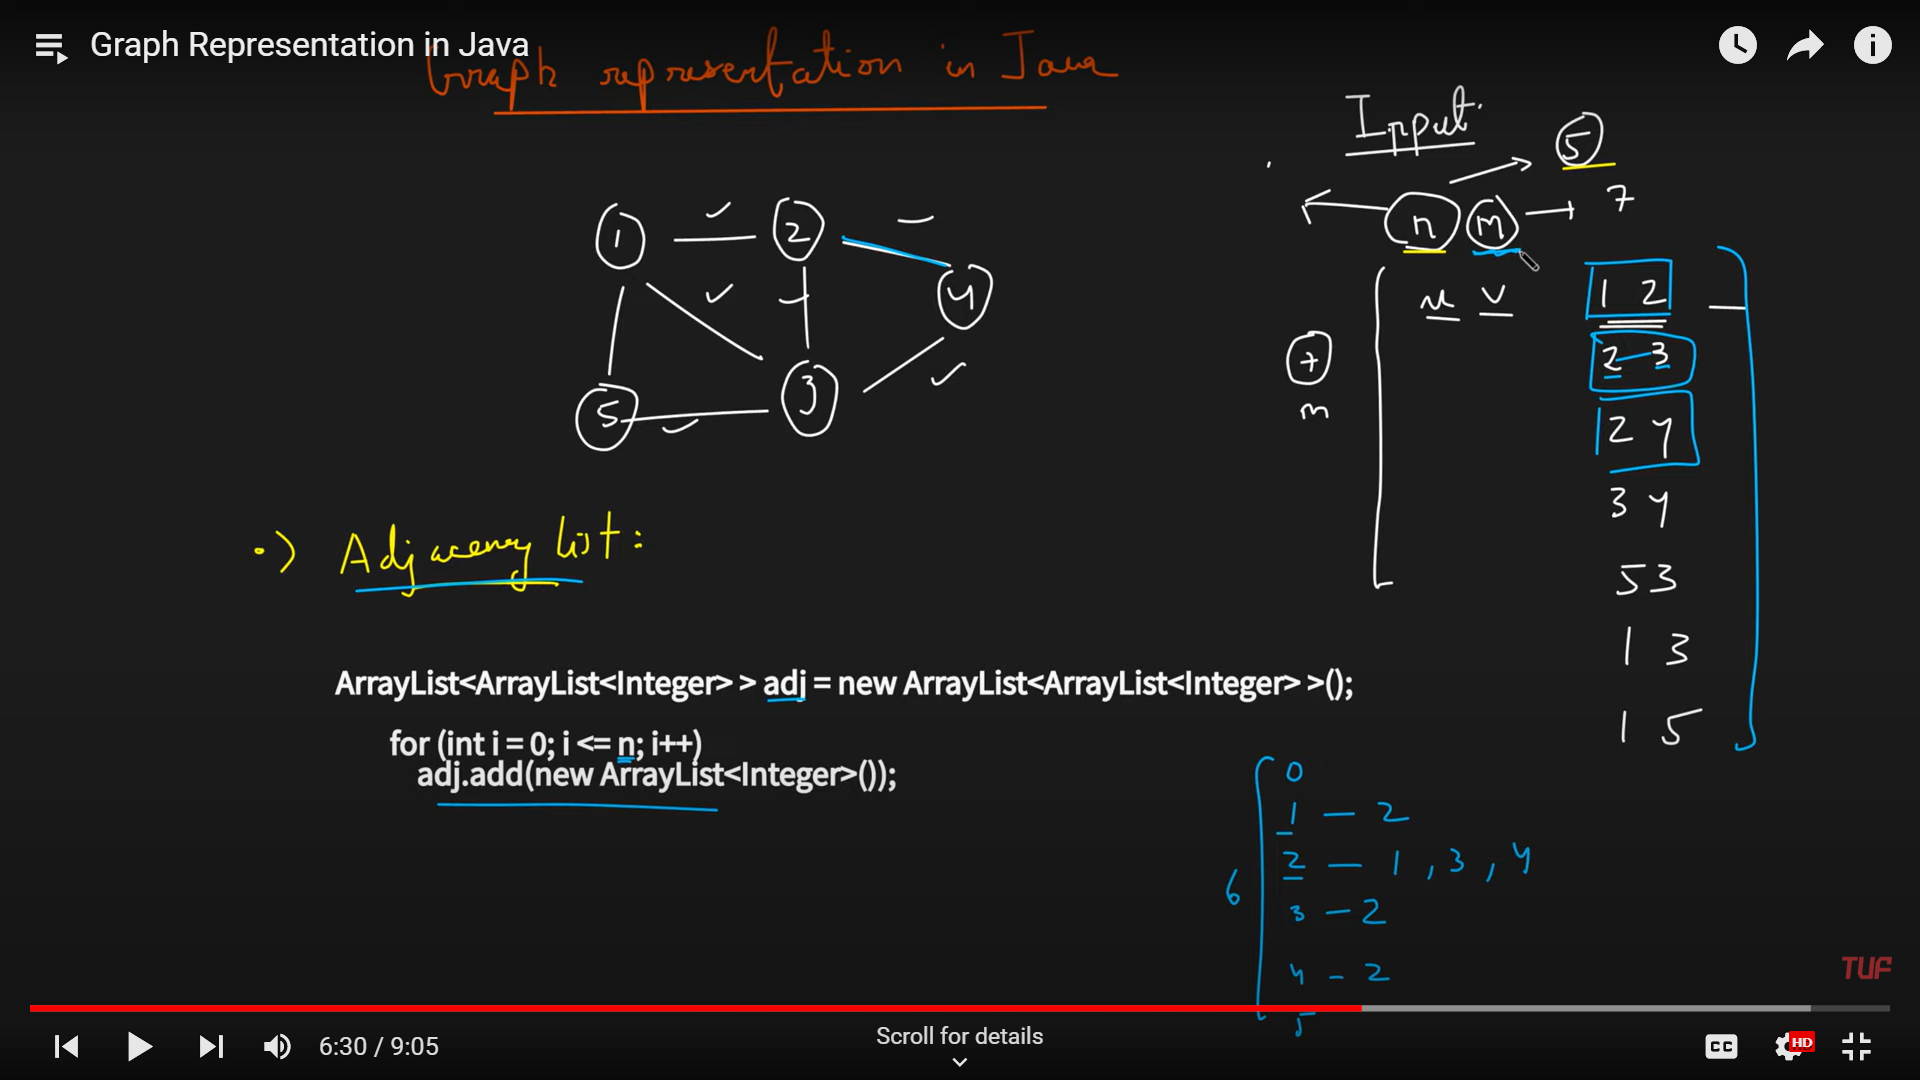 Graph Representation in Java
Graph representation in Java
Input
5
n m 7
1 2
4
3
5
u v
1 2
2 3
2 4
3 4
5 3
1 3
1 5
+
m
Adjacency list:
ArrayList<ArrayList<Integer> > adj = new ArrayList<ArrayList<Integer> >();
for (int i = 0; i <= n; i++)
adj.add(new ArrayList<Integer>());
6
0
1 - 2
2 - 1, 3, 4
3 - 2
4 - 2
5
TUF
6:30 / 9:05
Scroll for details
CC
HD